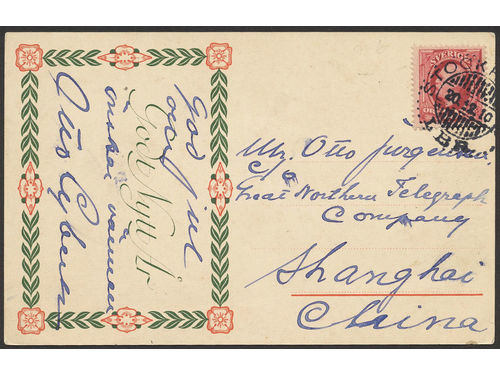 God jul
och
Godt Nytt År
önskar vännen
Otto
SVERIGE
STOCKH
20.12.10
Mr. Otto Jürgensen
c/o
Great Northern Telegraph
Company
Shanghai
China